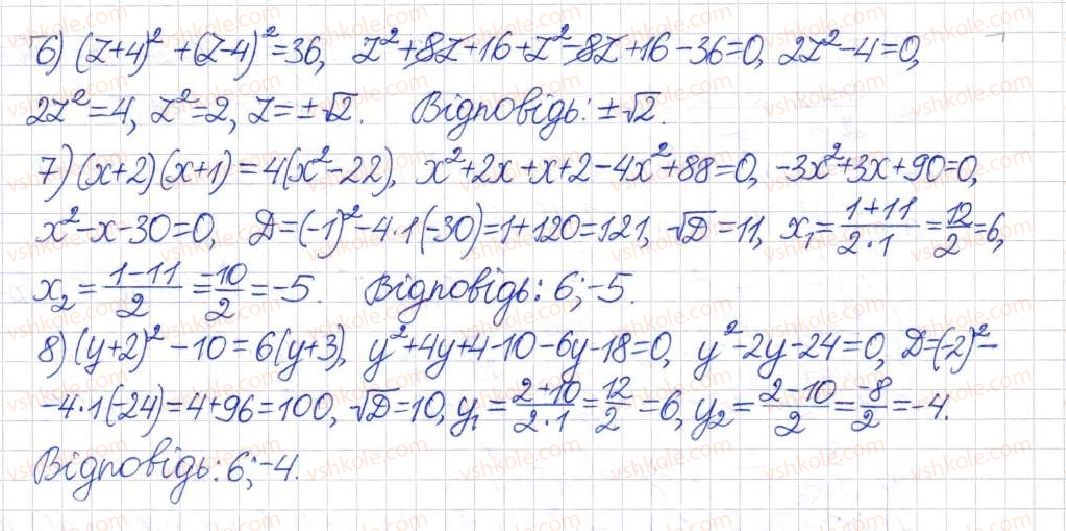 6) (z+4)² + (z-4)² = 36, z² + 8z + 16 + z² - 8z + 16 - 36 = 0, 2z² - 4 = 0,
2z² = 4, z² = 2, z = ±√2. Відповідь: ±√2.
7) (x+2)(x+1) = 4(x² - 22), x² + 2x + x + 2 - 4x² + 88 = 0, -3x² + 3x + 90 = 0,
x² - x - 30 = 0, D = (-1)² - 4·1(-30) = 1 + 120 = 121, √D = 11, x₁ = (1+11)/(2·1) = 12/2 = 6,
x₂ = (1-11)/2 = -10/2 = -5. Відповідь: 6; -5.
8) (y+2)² - 10 = 6(y+3), y² + 4y + 4 - 10 - 6y - 18 = 0, y² - 2y - 24 = 0, D = (-2)² -
-4·1(-24) = 4 + 96 = 100, √D = 10, y₁ = (2+10)/(2·1) = 12/2 = 6, y₂ = (2-10)/2 = -8/2 = -4.
Відповідь: 6; -4.